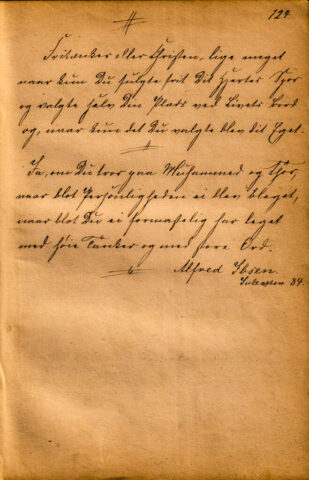 124
Fritænker eller Christen, lige meget
naar kun Du fulgte frit Dit Hjertes Spor
og valgte selv Din Plads ved Livets Bord
og, naar kun det Du valgte blev dit Eget.
Ja, om Du tror paa Muhammed og Thor,
naar blot Personligheden ei blev bleget,
naar blot Du ei formastelig har leget
med høie Tanker og med store Ord.
Alfred Ibsen.
84.